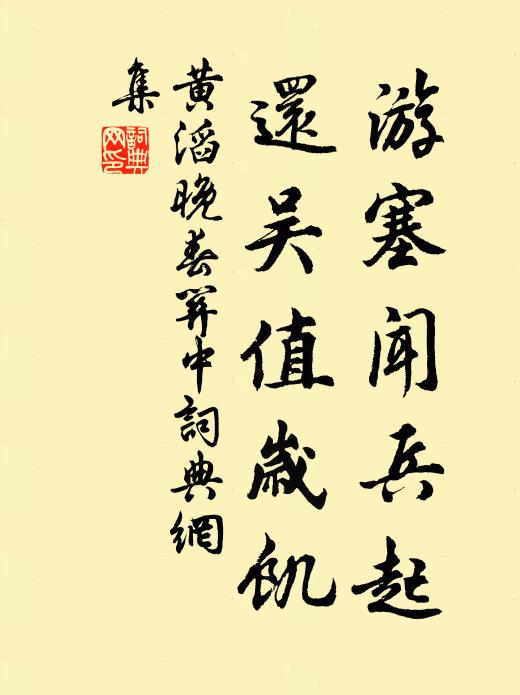 游塞聞兵起
還吳值歲飢
黃滔晚春關中詞典網
集
詞典网印